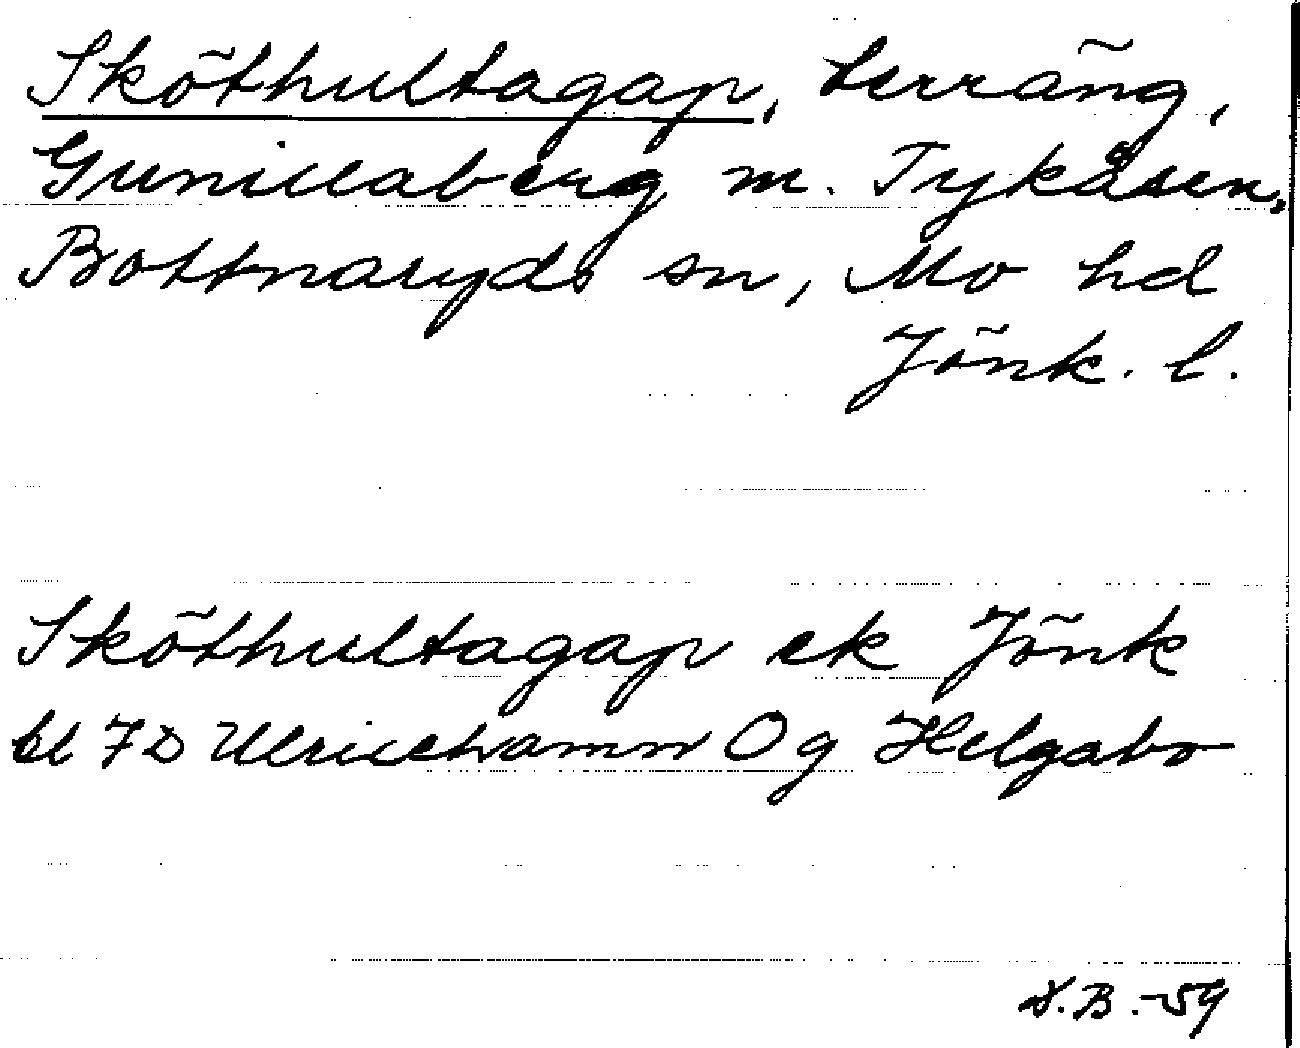 Sköthultagap, terräng,
Gunillaberg m. Tykåsen,
Bottnaryds sn, Mo hd
Jönk. l.
Sköthultagap ek Jönk
bl 7D Ulricehamn Og Helgabo
D.B.-59